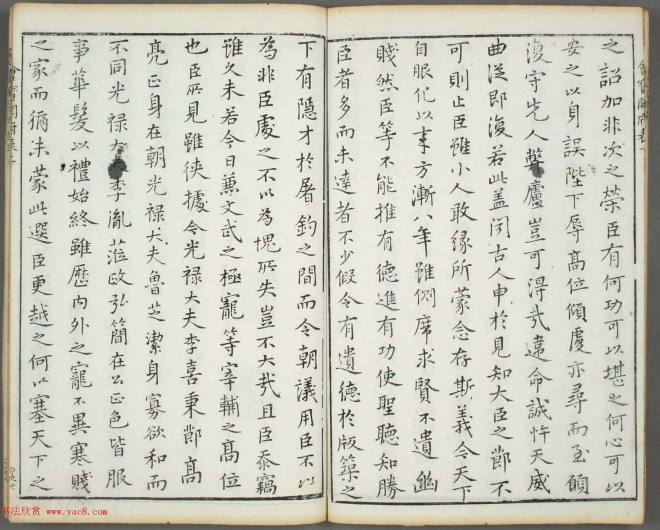 之詔加非次之榮臣有何功可以堪之何心可以
安之以身誤陛下辱高位傾虔亦尋而至願
復守先人弊廬豈可得哉違命誠忤天威
曲從即復若此盖聞古人申於見知大臣之節不
可則止臣雖小人敢緣所蒙念存斯義今天下
自服化以来方漸八年雖側席求賢不遺幽
賤然臣等不能推有德進有功使聖聽知勝
臣者多而未達者不少假令有遺德於版築之
下有隱才於屠釣之間而令朝議用臣不以
為非臣處之不以為愧所失豈不大哉且臣忝竊
雖久未若今日兼文武之極寵等宰輔之高位
也臣所見雖俠據今光禄大夫李喜秉節高
亮正身在朝光禄大夫魯芝潔身寡欲和而
不同光禄大夫李胤莅政弘簡在公正色皆服
事華髮以禮始終雖歷内外之寵不異寒賤
之家而猶未蒙此選臣更越之何以塞天下之
书法欣赏 www.yac8.com